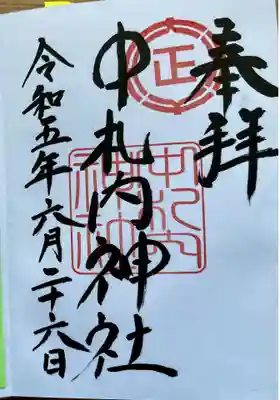 奉拝
正
中札内神社
中札内
神社
令和五年六月二十六日